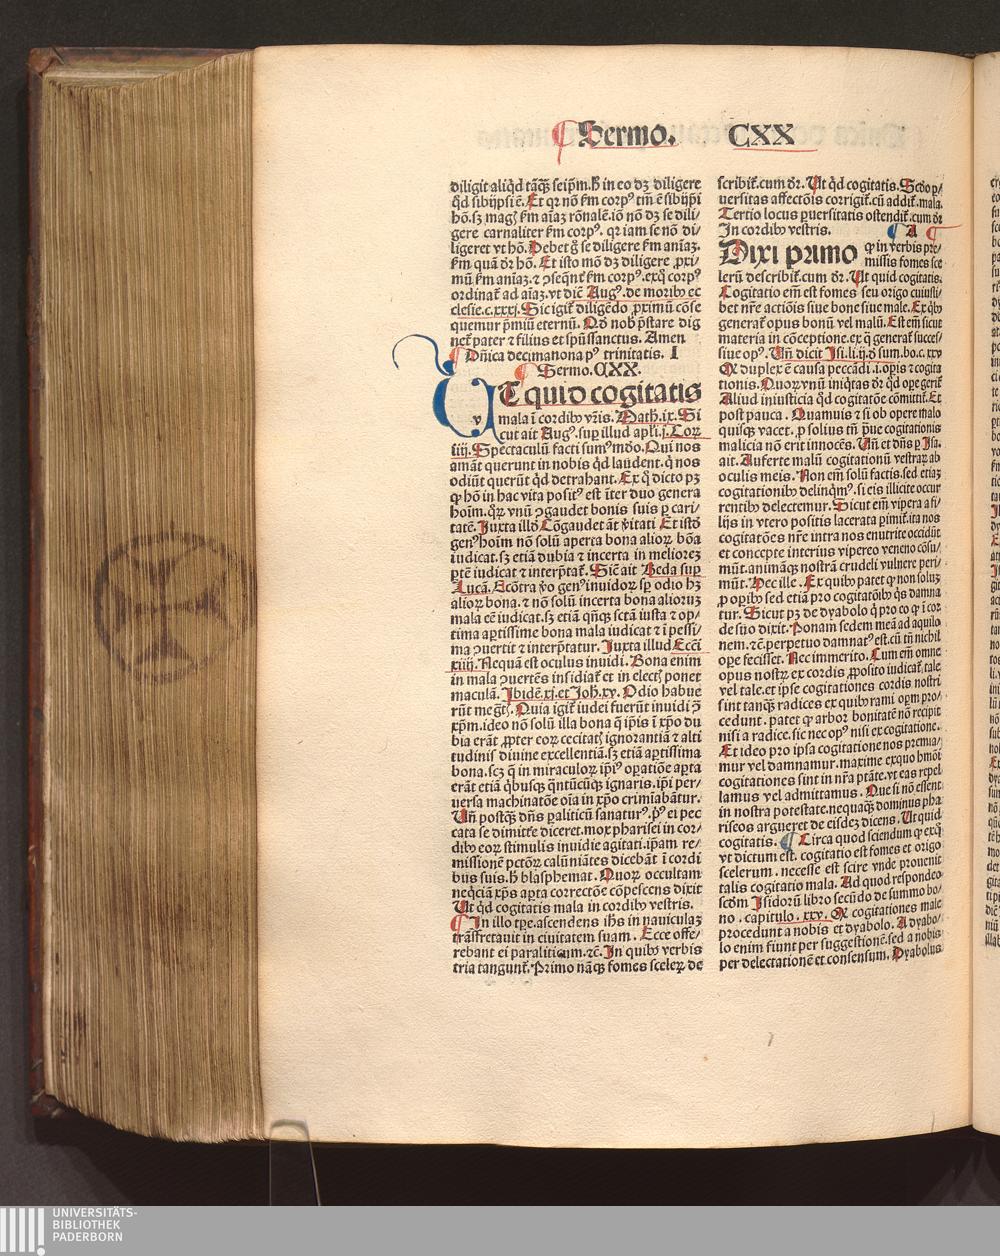 Sermo. CXX
diligit aliqd tāqꝫ seip̄m. H̄ in eo dꝫ diligere
qd sibiip̄si ē. Et qꝛ nō ẜm corpꝰ tm̄ ē sibiip̄i
hō. sꝫ magꝭ ẜm aīaꝫ rōnalē. iō nō dꝫ se dili
gere carnaliter ẜm corpꝰ. qꝛ iam se nō di/
ligeret vt hō. Debet gͦ se diligere ẜm aniaꝫ.
ẜm quā dr̄ hō. Et isto mō dꝫ diligere ꝓxi/
mū ẜm aniaꝫ. ⁊ ꝯseqn̄t ẜm corpꝰ. exq̄ corpꝰ
ordinat᷑ ad aīaꝫ. vt dic̄ Augꝰ. de moribꝰ ec
clesie. c. xxxj. Sic igit᷑ diligēdo ꝓximū cōse
quemur p̄miū eternū. Qd̄ nobꝭ p̄stare dig
net᷑ pater ⁊ filius et sp̄ussanctus. Amen
¶ Dn̄ica decimanona pꝰ trinitatis. I
¶ Sermo. CXX.
VT quid cogitatis
mala ī cordibꝰ vr̄is. Math. ix. Si
cut ait Augꝰ. sup̄ illud apl̄i. j. Coꝝ
iiij. Spectaculū facti sumꝰ mūdo. Qui nos
amāt querunt in nobis qd laudent. q̄ nos
odiūt querūt qd detrahant. Ex q̄ dicto pꝫ
ꝙ hō in hac vita positꝰ est īter duo genera
hoīm. qꝛꝝ vnū ꝯgaudet bonis suis ꝑ cari/
tatē. Juxta illd̄ Cōgaudet āt v̄itati Et istd̄
genꝰ hoīm nō solū aperta bona alioꝝ bōa
iudicat. sꝫ etiā dubia ⁊ incerta in melioreꝫ
ꝑtē iudicat ⁊ interp̄tat᷑. Sic̄ ait Beda sup
Lucā. Ecōtra v̄o genꝰ inuidoꝝ sꝑ odio hꝫ
alioꝝ bona. ⁊ nō solū incerta bona alioruꝫ
mala eē iudicat. sꝫ etiā qn̄qꝫ sctā iusta ⁊ op/
tima aptissime bona mala iudicat ⁊ ī pessi/
ma ꝯuertit ⁊ interp̄tatur. Juxta illud Ecci
xiiij. Nequā est oculus inuidi. Bona enim
in mala ꝯuertēs insidiat᷑ et in electꝭ ponet
maculā. Ibidē. xj. et Joh̄. xv. Odio habue
rūt me gr̄tꝭ. Quia igit᷑ iudei fuerūt inuidi ꝯ̄
xp̄m. ideo nō solū illa bona q̄ ip̄is ī xp̄o du
bia erāt ꝓpter eoꝝ cecitatꝭ ignorantiā ⁊ alti
tudinis diuine excellentiā. sꝫ etiā aptissima
bona. scꝫ q̄ in miraculoꝝ ip̄iꝰ oꝑatiōe aꝑta
erāt etiā qbusqꝫ qn̄tūcūqꝫ ignaris. ip̄i per/
uersa machinatōe oīa in xp̄o crimīabātur.
Un̄ postqꝫ dn̄s ꝑaliticū sanaturꝰ. pͥꝰ ei pec
cata se dimitt̄e diceret. mox pharisei in cor/
dibꝰ eoꝝ stimulis inuidie agitati. ip̄am re/
missionē pctōꝝ calūniātes dicebāt ī cordi
bus suis. H̄ blasphemat. Quoꝝ occultam
neq̄ciā xp̄s aꝑta correctōe cōpescens dixit
Ut qd cogitatis mala in cordibꝰ vestris.
¶ In illo tꝑe. ascendens ih̄s in nauiculaꝫ
trāsfretauit in ciuitatem suam. Ecce offe/
rebant ei paraliticum. ⁊c̄. In quibꝰ verbis
tria tangunt᷑. Primo nāqꝫ fomes sceleꝝ de
scribit᷑. cum dr̄. Ut qd cogitatis. Scd̄o ꝑ/
uersitas affectōis corrigit᷑. cū addit᷑. mala.
Tertio locus ꝑuersitatis ostendit᷑. cum dr̄
In cordibꝰ vestris. ¶ A ¶
Dixi primo ꝙ in verbis pre/
missis fomes sce
lerū describit᷑. cum dr̄. Ut quid cogitatis.
Cogitatio em̄ est fomes seu origo cuiusli/
bet nr̄e actiōis siue bone siue male. Ex qͥbꝰ
generat᷑ opus bonū vel malū. Est em̄ sicut
materia in cōceptione. ex q̄ generat᷑ succes/
siue opꝰ. Un̄ dicit Isi. li. ij. d̄ sum. bo. c. xxv
Qꝫ duplex ē causa peccādi. i. oꝑis ⁊ cogita
tionis. Quoꝝ vnū iniqͥtas dr̄ qd ope gerit᷑
Aliud iniusticia qd cogitatōe cōmittit᷑. Et
post pauca. Quamuis ⁊ si ob opere malo
quisqꝫ vacet. ꝓ solius tn̄ p̄ue cogitationis
malicia nō erit innocēs. Un̄ et dn̄s ꝑ Isa.
ait. Auferte malū cogitationū vestraꝝ ab
oculis meis. Non em̄ solū factis. sed etiaꝫ
cogitationibꝰ delinqͥmꝰ. si eis illicite occur
rentibꝰ delectemur. Sicut em̄ vipera a fi/
lijs in vtero positis lacerata ꝑimit᷑. ita nos
cogitatōes nr̄e intra nos enutrite occidūt
et concepte interius vipereo veneno cōsu/
mūt. animāqꝫ nostrā crudeli vulnere peri/
mūt. Hec ille. Ex quibꝰ patet ꝙ non soluꝫ
ꝓ oꝑibꝰ sed etiā pro cogitatōibꝰ qͥs damna
tur. Sicut pꝫ de dyabolo q̄ pro eo ꝙ ī cor
de suo dixit. Ponam sedem meā ad aquilo
nem. ⁊c̄. perpetuo damnatꝰ est. cū tn̄ nichil
ope fecisset. Nec immerito. Cum em̄ omne
opus nostꝝ ex cordis ꝓposito iudicat᷑. tale
vel tale. et ipse cogitationes cordis nostri
sint tanqꝫ radices ex quibꝰ rami oꝑm pro/
cedunt. patet ꝙ arbor bonitatē nō recipit
nisi a radice. sic nec opꝰ nisi ex cogitatione.
Et ideo pro ipsa cogitatione nos premia/
mur vel damnamur. maxime exquo hmōi
cogitationes sint in nr̄a ptāte. vt eas repel
lamus vel admittamus. Que si nō essent
in nostra potestate. nequaqꝫ dominus pha
riseos argueret de eisdeꝫ dicens. Ut quid
cogitatis. ¶ Circa quod sciendum ꝙ exq̄
vt dictum est. cogitatio est fomes et origo
scelerum. necesse est scire vnde prouenit
talis cogitatio mala. Ad quod respondeo
scd̄m Isidorū libro secūdo de summo bo/
no. capitulo. xxv. Qꝫ cogitationes male
procedunt a nobis et dyabolo. A dyabo/
lo enim fiunt per suggestionē. sed a nobis
per delectationē et consensum. Dyabolus
UNIVERSITÄTS-
BIBLIOTHEK
PADERBORN